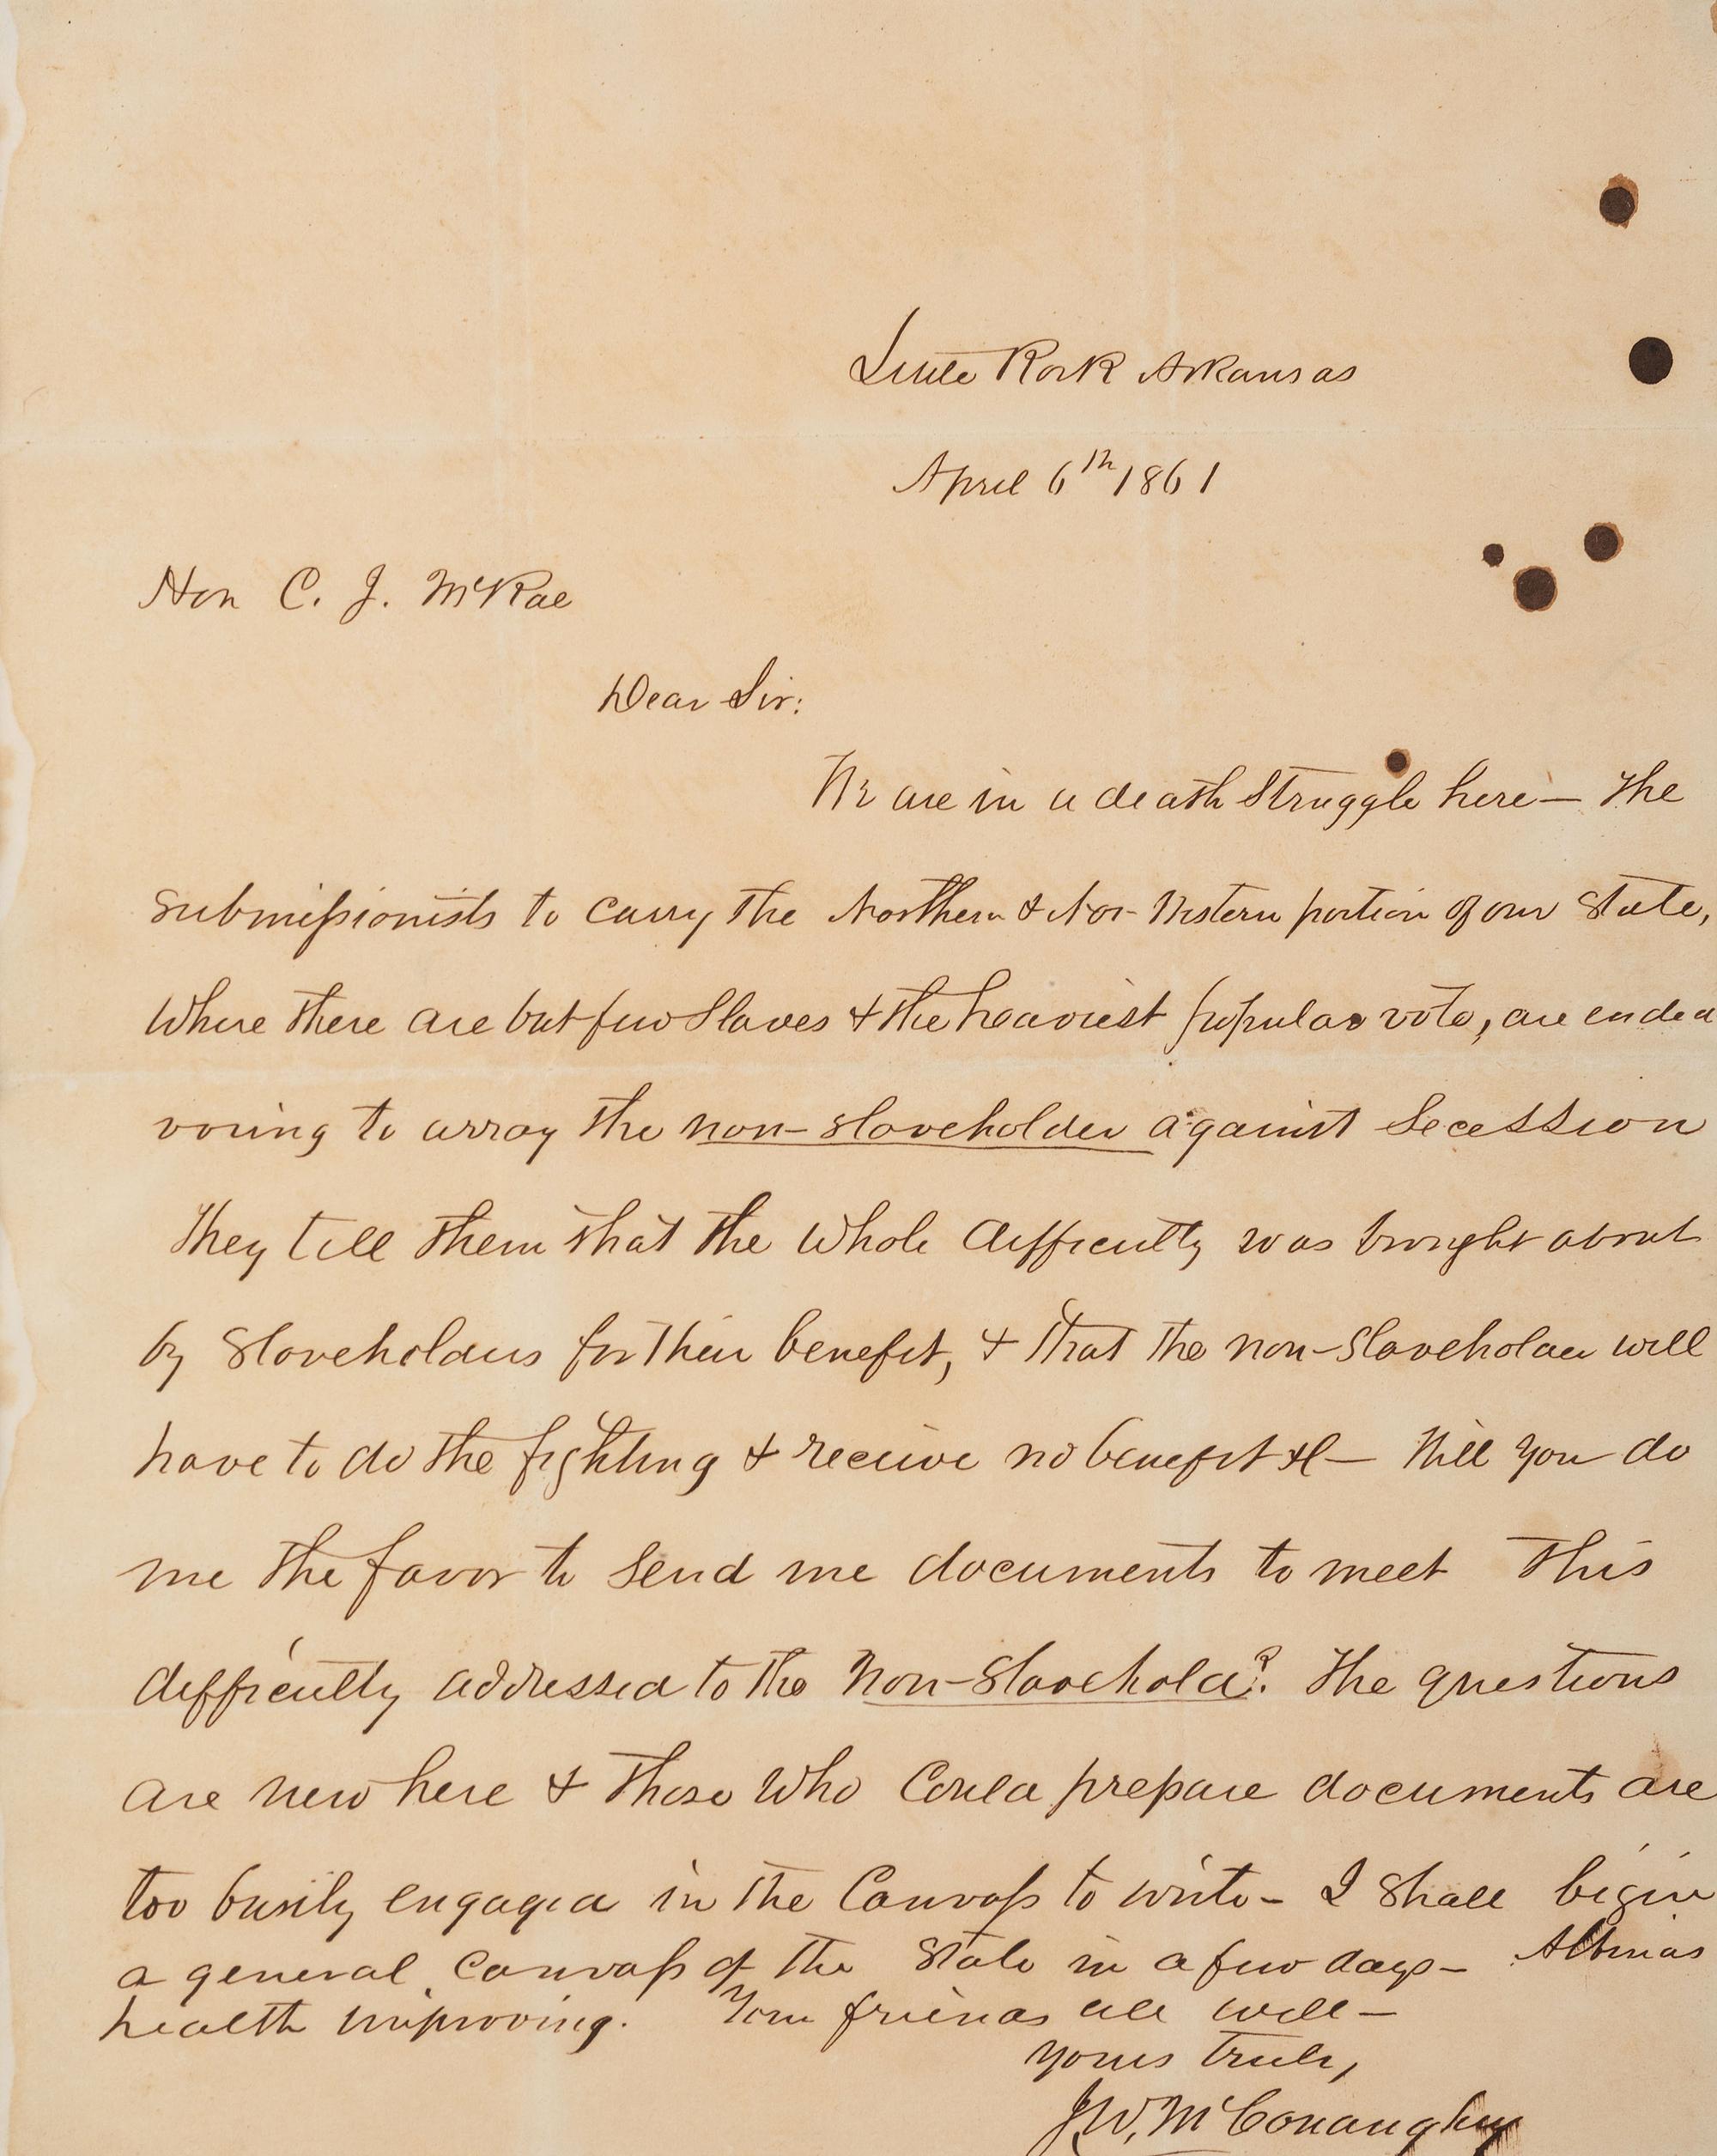 Little Rock Arkansas
April 6th 1861
Hon C. J. McRae
Dear Sir:
We are in a death struggle here — The
submissionists to carry the Northern & Nor-Western portion of our State,
Where there are but few Slaves & the heaviest popular vote, are endea
voring to array the non-slaveholder against Secession
They tell them that the whole difficulty was brought about
by Slaveholders for their benefit, & that the non-Slaveholder will
have to do the fighting & receive no benefit &c — Will you do
me the favor to send me documents to meet this
difficulty addressed to the Non-Slavehold? The questions
are new here & those who Could prepare documents are
too busily engaged in the Canvass to write — I shall begin
a general Canvass of the State in a few days —
health improving. Your friends all well —
yours truly,
J.W. McConaughey